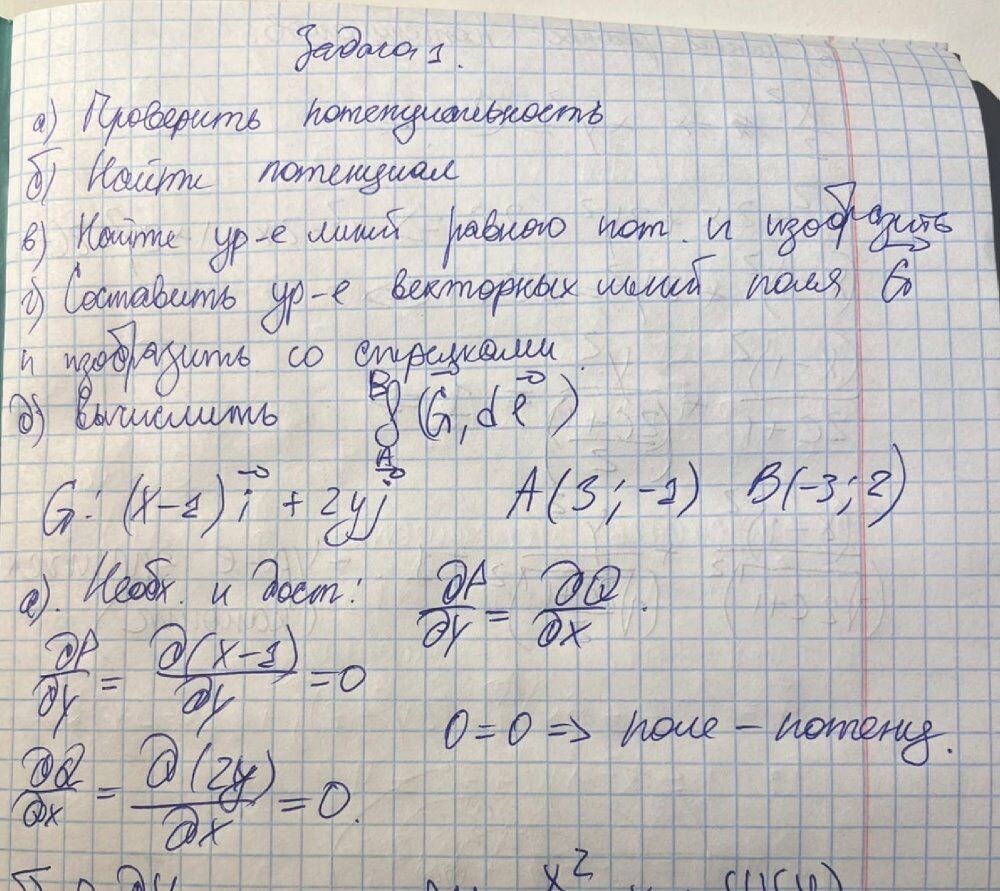 Задача 1.
а) Проверить потенциальность
б) Найти потенциал
в) Найти ур-е линий равного пот. и изобразить
г) Составить ур-е векторных линий поля G⃗
и изобразить со стрелками
д) Вычислить ∫_A^B (G⃗, dℓ⃗)
G: (x-1)i⃗ + 2yj⃗ A(3;-1) B(-3;2)
а). Необх. и дост: ∂P/∂y = ∂Q/∂x.
∂P/∂y = ∂(x-1)/∂y = 0
0=0 => поле - потенц.
∂Q/∂x = ∂(2y)/∂x = 0.